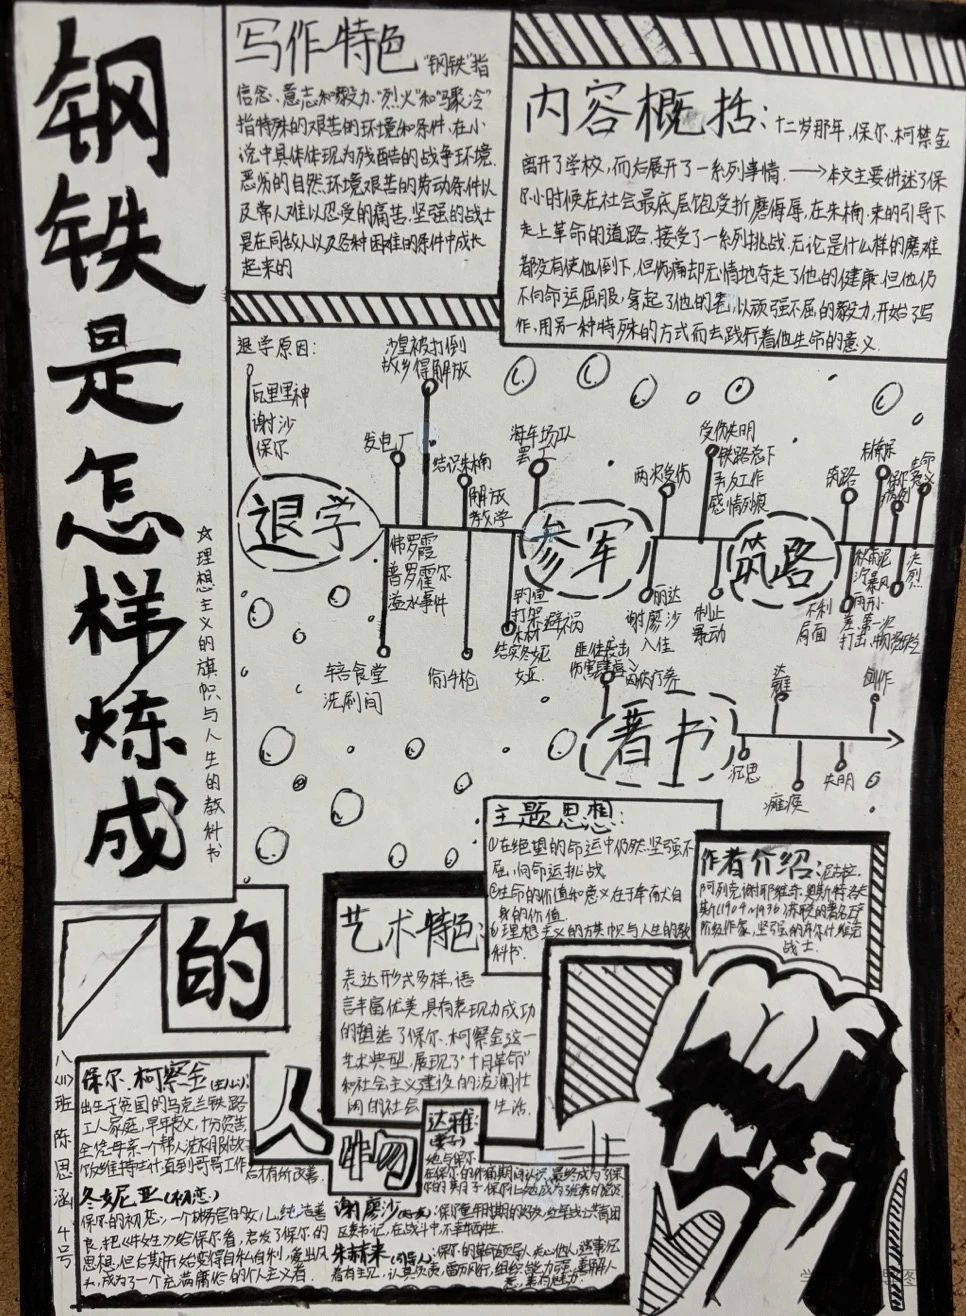 钢铁是怎样炼成
的
☆理想主义的旗帜与人生的教科书
写作特色 "钢铁"指
信念、意志和毅力."烈火"和"骤冷"
指特殊的艰苦的环境和条件,在小
说中具体体现为残酷的战争环境.
恶劣的自然环境艰苦的劳动条件以
及常人难以忍受的痛苦,坚强的战士
是在同敌人以及各种困难的条件中成长
起来的
内容概括:十二岁那年,保尔.柯察金
离开了学校,而后展开了一系列事情.→本文主要讲述了保
尔小时候在社会最底层饱受折磨侮辱,在朱赫.来的引导下
走上革命的道路,接受了一系列挑战.无论是什么样的磨难
都没有使他倒下,但伤痛却无情地夺走了他的健康.但他仍
不向命运屈服,拿起了他的笔,以顽强不屈的毅力,开始了写
作,用另一种特殊的方式而去践行着他生命的意义.
退学原因:
瓦里里神
谢沙
保尔
沙皇被打倒
故乡得解放
发电厂
结识朱赫
解放
教学
退学
弗罗霞
普罗霍尔
溢水事件
车站食堂
洗刷间
偷手枪
罢工
参军
钓鱼
打架
避祸
结实冬妮
娅
两次受伤
丽达
谢廖沙
入住
受伤失明
铁路总下
养友工作
感情烈痕
制止
暴动
筑路
筑路
不利
局面
生命
意义
著书
沉思
瘫痪
达雅
失明
创作
主题思想:
①在绝望的命运中仍然坚强不
屈,向命运挑战
②生命的价值和意义在于奉献大自
身的价值.
③理想主义的旗帜与人生的教
科书.
作者介绍:尼古拉.
阿列克谢耶维奇.奥斯特洛夫
斯(1904~1936)苏联的著名无产
阶级作家,坚强的布尔什维克
战士.
艺术特色:
表达形式多样,语
言丰富优美,具有表现力成功
的塑造了保尔.柯察金这一
艺术典型,展现了"十月革命"
和社会主义建设的波澜壮
阔的社会 生活.
八(11)班陈思涵4号
人
物
保尔.柯察金(主人公):
出生于贫困的乌克兰铁路
工人家庭,早年丧父,十分贫苦
全凭母亲一个帮人洗衣服做
饭维持生计,直到哥哥工作
后才有所改善.
冬妮亚(初恋)
保尔的初恋,一个林务官的女儿,纯洁善
良,把《牛虻》介给保尔看,启发了保尔的
思想,但后期开始变得自私自利,爱出风
头,成为了一个充满庸俗的个人主义者.
达雅:
(妻子)
她与保尔
在保尔的伤病期间认识,最终成为了保
尔的妻子
谢廖沙(好友):保尔童年时期的好友,红军战士,共青团
区委书记,在战斗中不幸牺牲.
朱赫来(引导人):保尔的革命领导人,关心他人,遇事冗
着有主见,认真负责,雷厉风行,组织能力强,善解人
意,善有魅力.